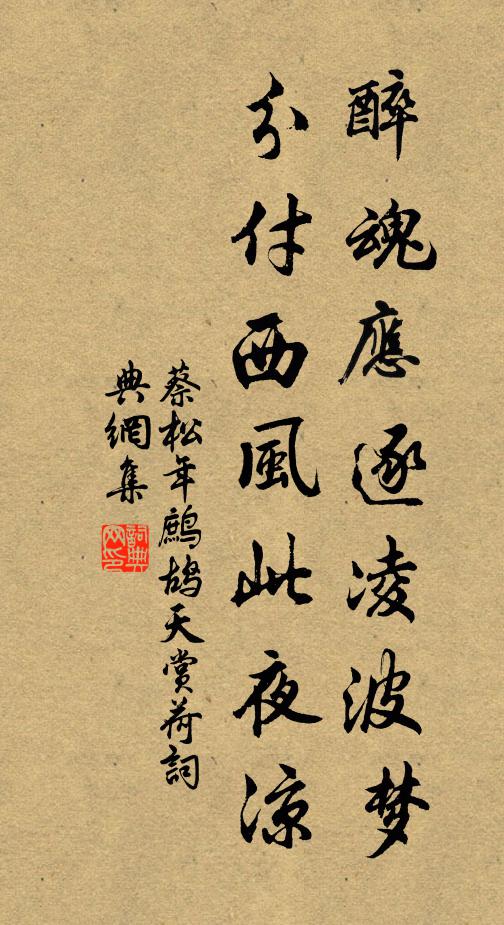 醉魂應逐凌波梦
分付西風此夜凉
蔡松年鷓鴣天賞荷詞
典網集
詞典网印